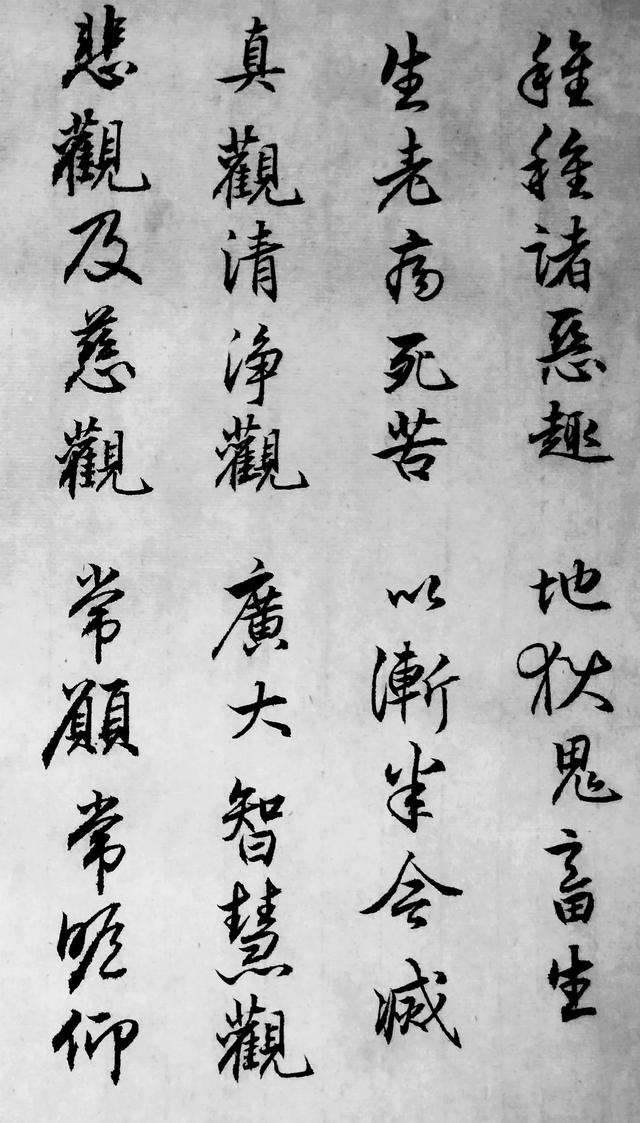 種種諸惡趣 地獄鬼畜生
生老病死苦 以漸悉令滅
真觀清淨觀 廣大智慧觀
悲觀及慈觀 常願常瞻仰